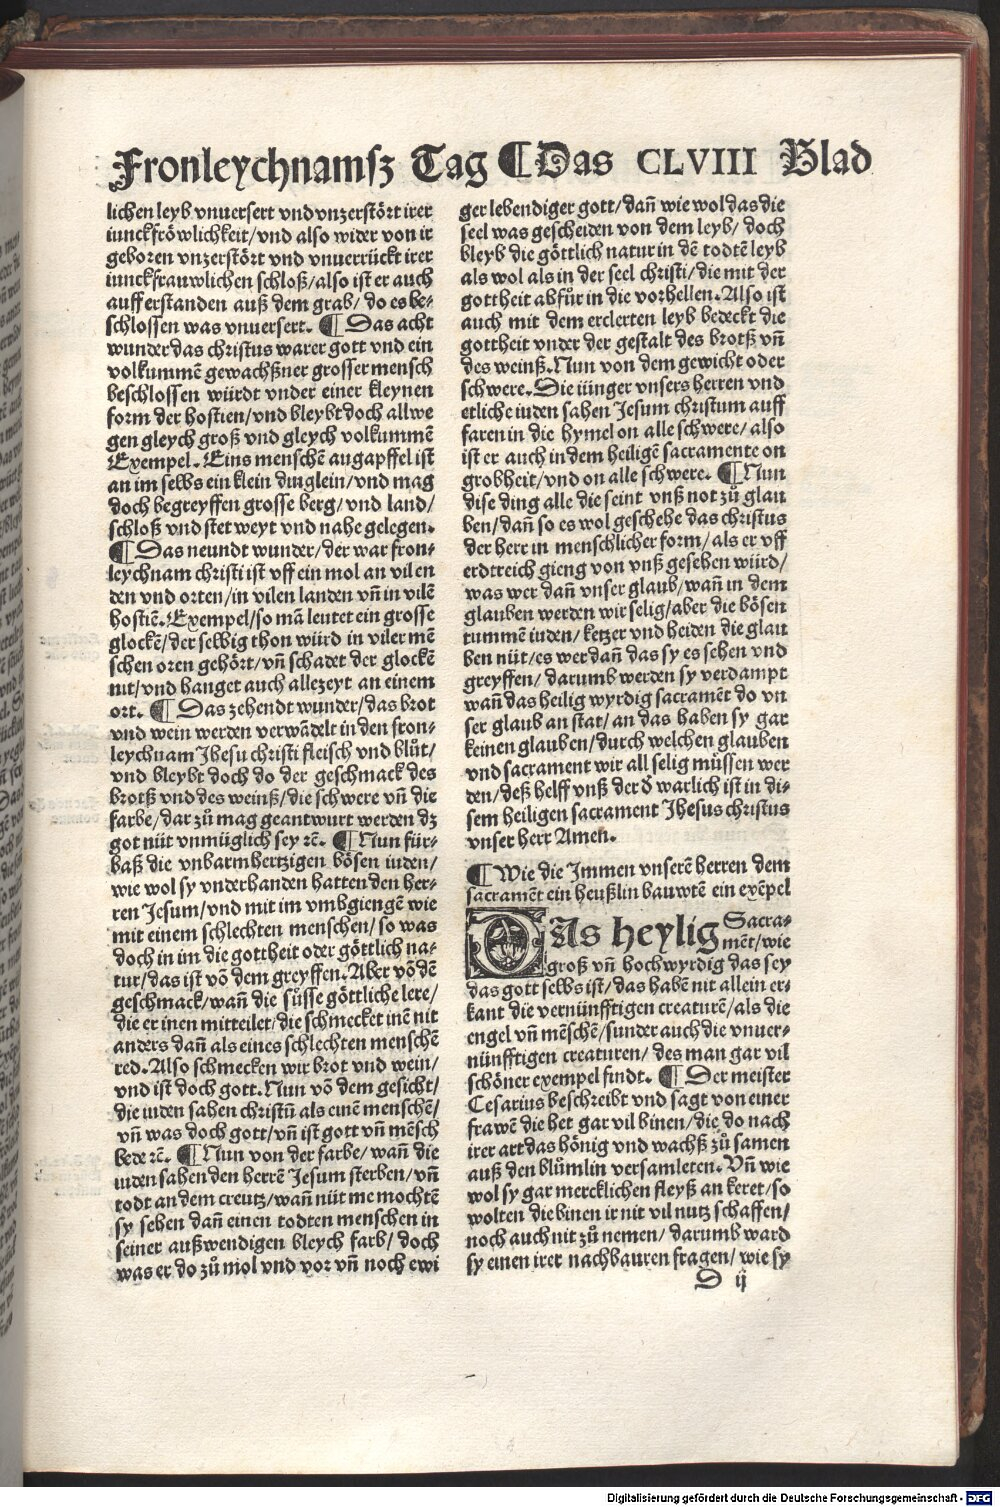 Fronleychnamſz Tag ¶ Das CLVIII Blad
lichen leyb vnuerſert vnd vnzerſtört irer
iunckfröwlichkeit/vnd alſo wider von ir
geboren vnzerſtört vnd vnuerrückt irer
iunckfrauwlichen ſchloß/alſo iſt er auch
aufferſtanden auß dem grab/ do es be⸗
ſchloſſen was vnuerſert. ¶ Das acht
wunder das chriſtus warer gott vnd ein
volkummē gewachßner groſſer menſch
beſchloſſen würdt vnder einer kleynen
form der hoſtien/vnd bleybt doch allwe
gen gleych groß vnd gleych volkummē
Exempel. Eins menſchē augapffel iſt
an im ſelbs ein klein dinglein/vnd mag
doch begreyffen groſſe berg/vnd land/
ſchloß vnd ſtet weyt vnd nahe gelegen.
¶ Das neundt wunder/der war fron⸗
leychnam chriſti iſt vff ein mol an vil en
den vnd orten/in vilen landen vn̄ in vilē
hoſtiē. Exempel/ſo mā leutet ein groſſe
glockē/der ſelbig thon würd in viler mē
ſchen oren gehört/vn̄ ſchadet der glockē
nit/vnd hanget auch allezeyt an einem
ort. ¶ Das zehendt wunder/das brot
vnd wein werden verwādelt in den fron⸗
leychnam Jheſu chriſti fleiſch vnd blůt/
vnd bleybt doch do der geſchmack des
brotß vnd des weinß/die ſchwere vn̄ die
farbe/dar zů mag geantwurt werden dz
got nüt vnmüglich ſey rē. ¶ Nun für⸗
baß die vnbarmhertzigen böſen iuden/
wie wol ſy vnderhanden hatten den her⸗
ren Jeſum/vnd mit im vmbgiengē wie
mit einem ſchlechten menſchen/ſo was
doch in im die gottheit oder göttlich na⸗
tur/das iſt vō dem greyffen. Aber vō dē
geſchmack/wan̄ die ſüſſe göttliche lere/
die er inen mitteilet/die ſchmecket inē nit
anders dan̄ als eines ſchlechten menſchē
red. Alſo ſchmecken wir brot vnd wein/
vnd iſt doch gott. Nun vō dem geſicht/
die iuden ſahen chriſtū als einē menſchē/
vn̄ was doch gott/vn̄ iſt gott vn̄ mēſch
bede rē. ¶ Nun von der farbe/wan̄ die
iuden ſahen den herrē Jeſum ſterben/vn̄
todt an dem creutz/wan̄ nüt me mochtē
ſy ſehen dan̄ einen todten menſchen in
ſeiner außwendigen bleych farb/ doch
was er do zů mol vnd vor vn̄ noch ewi
ger lebendiger gott/dan̄ wie wol das die
ſeel was geſcheiden von dem leyb/ doch
bleyb die göttlich natur in dē todtē leyb
als wol als in der ſeel chriſti/die mit der
gottheit abfůr in die vorhellen. Alſo iſt
auch mit dem erclerten leyb bedeckt die
gottheit vnder der geſtalt des brotß vn̄
des weinß. Nun von dem gewicht oder
ſchwere. Die iünger vnſers herren vnd
etliche iuden ſahen Jeſum chriſtum auff
faren in die hymel on alle ſchwere/ alſo
iſt er auch in dem heiligē ſacramente on
grobheit/vnd on alle ſchwere. ¶ Nun
diſe ding alle die ſeint vnß not zů glau
ben/dan̄ ſo es wol geſchehe das chriſtus
der herr in menſchlicher form/als er vff
erdtreich gieng von vnß geſehen würd/
was wer dan̄ vnſer glaub/wan̄ in dem
glauben werden wir ſelig/aber die böſen
tummē iuden/ketzer vnd heiden die glau
ben nüt/es wer dan̄ das ſy es ſehen vnd
greyffen/ darumb werden ſy verdampt
wan̄ das heilig wyrdig ſacramēt do vn
ſer glaub an ſtat/an das haben ſy gar
keinen glauben/durch welchen glauben
vnd ſacrament wir all ſelig müſſen wer
den/deß helff vnß der d̕ warlich iſt in di⸗
ſem heiligen ſacrament Jheſus chriſtus
vnſer herr Amen.
¶ Wie die Jmmen vnſerē herren dem
ſacramēt ein heußlin bauwtē ein exēpel
DAs heylig Sacra⸗
mēt/wie
groß vn̄ hochwyrdig das ſey
das gott ſelbs iſt/das habē nit allein er⸗
kant die vernünfftigen creaturē/als die
engel vn̄ mēſchē/ſunder auch die vnuer⸗
nünfftigen creaturen/ des man gar vil
ſchöner exempel findt. ¶ Der meiſter
Ceſarius beſchreibt vnd ſagt von einer
frawē die het gar vil binen/die do nach
irer art das hönig vnd wachß zů ſamen
auß den blůmlin verſamleten. Vn̄ wie
wol ſy gar mercklichen fleyß an keret/ſo
wolten die binen ir nit vil nutz ſchaffen/
noch auch nit zů nemen/ darumb ward
ſy einen irer nachbauren fragen/ wie ſy
D ij
Digitalisierung gefördert durch die Deutsche Forschungsgemeinschaft - DFG